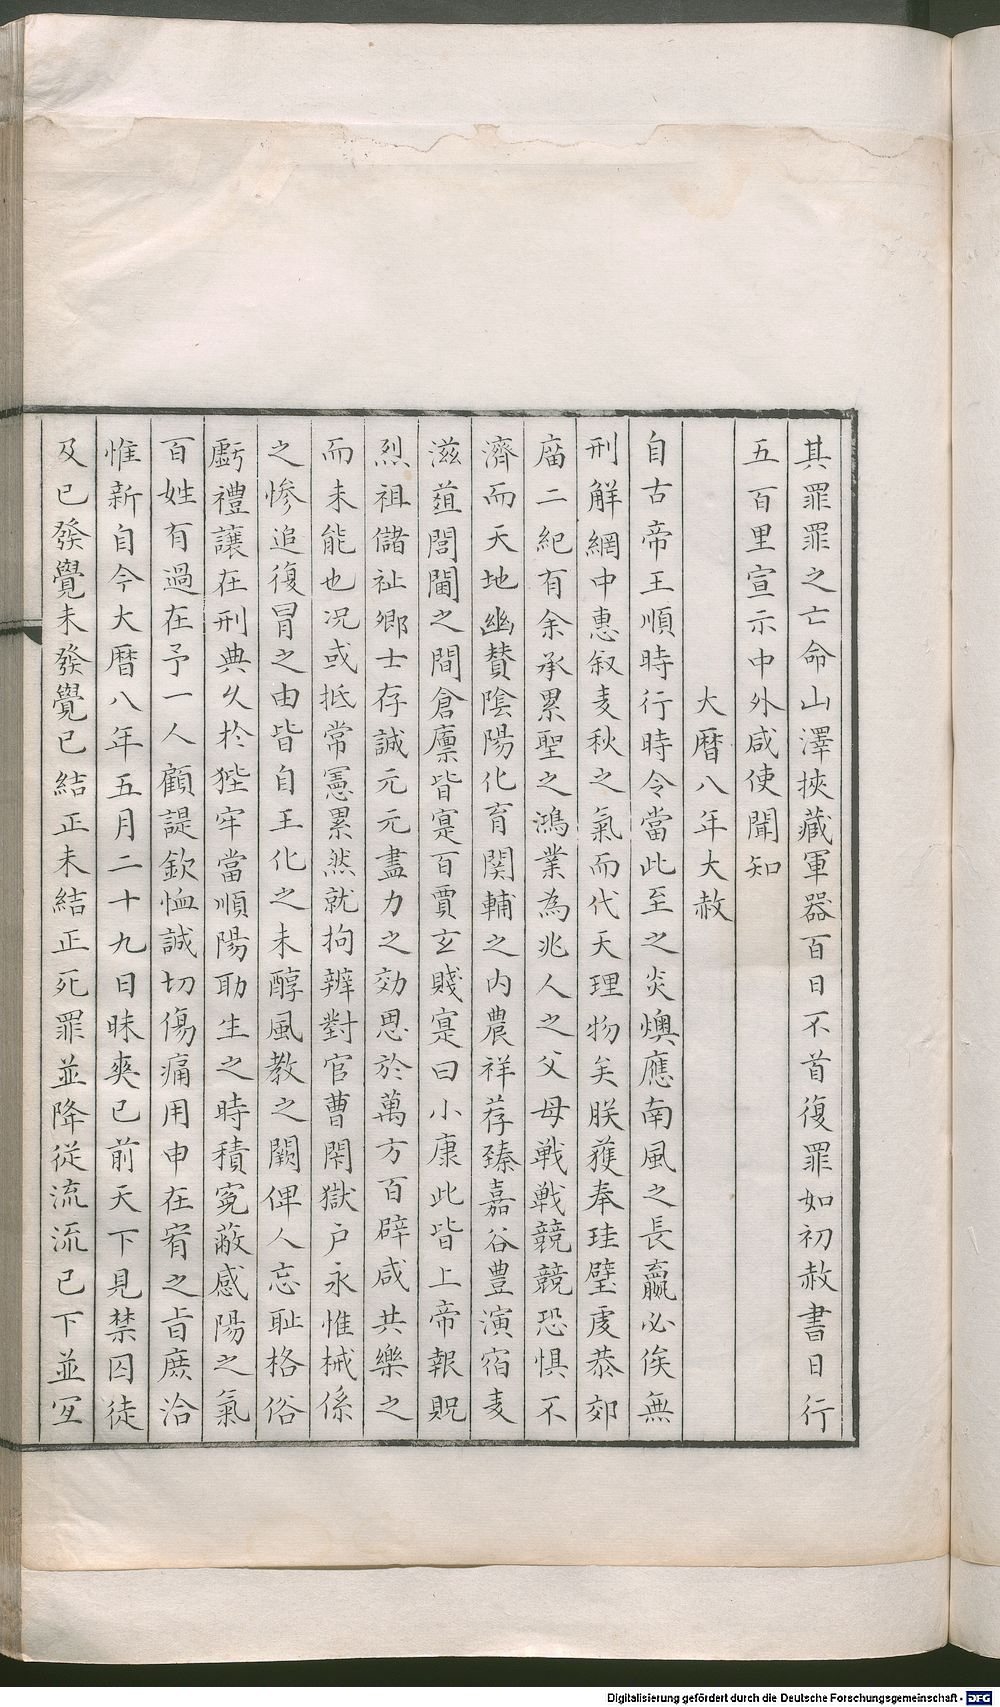 其罪罪之亡命山澤挾藏軍器百日不首復罪如初赦書日行
五百里宣示中外咸使聞知
大曆八年大赦
自古帝王順時行時令當此至之炎燠應南風之長贏必俟無
刑解網中惠叙麦秋之氣而代天理物矣朕獲奉珪璧虔恭郊
庿二紀有余承累聖之鴻業為兆人之父母戰戰兢兢恐惧不
濟而天地幽賛陰陽化育関輔之内農祥荐臻嘉谷豊演宿麦
滋葅閭閻之間倉廪皆寔百賈玄賤寔曰小康此皆上帝報貺
烈祖儲祉鄉士存誠元元盡力之効思於萬方百辟咸共樂之
而未能也况或抵常憲累然就拘辨對官曹閑獄户永惟械係
之惨追復冐之由皆自王化之未醇風教之闕俾人忘耻格俗
虧禮讓在刑典久於狴牢當順陽助生之時積寃蔽感陽之氣
百姓有過在予一人顧諟欽恤誠切傷痛用申在宥之㫖庶洽
惟新自今大曆八年五月二十九日昧爽已前天下見禁囚徒
及已發覺未發覺已結正未結正死罪並降從流流已下並宜
Digitalisierung gefördert durch die Deutsche Forschungsgemeinschaft - DFG